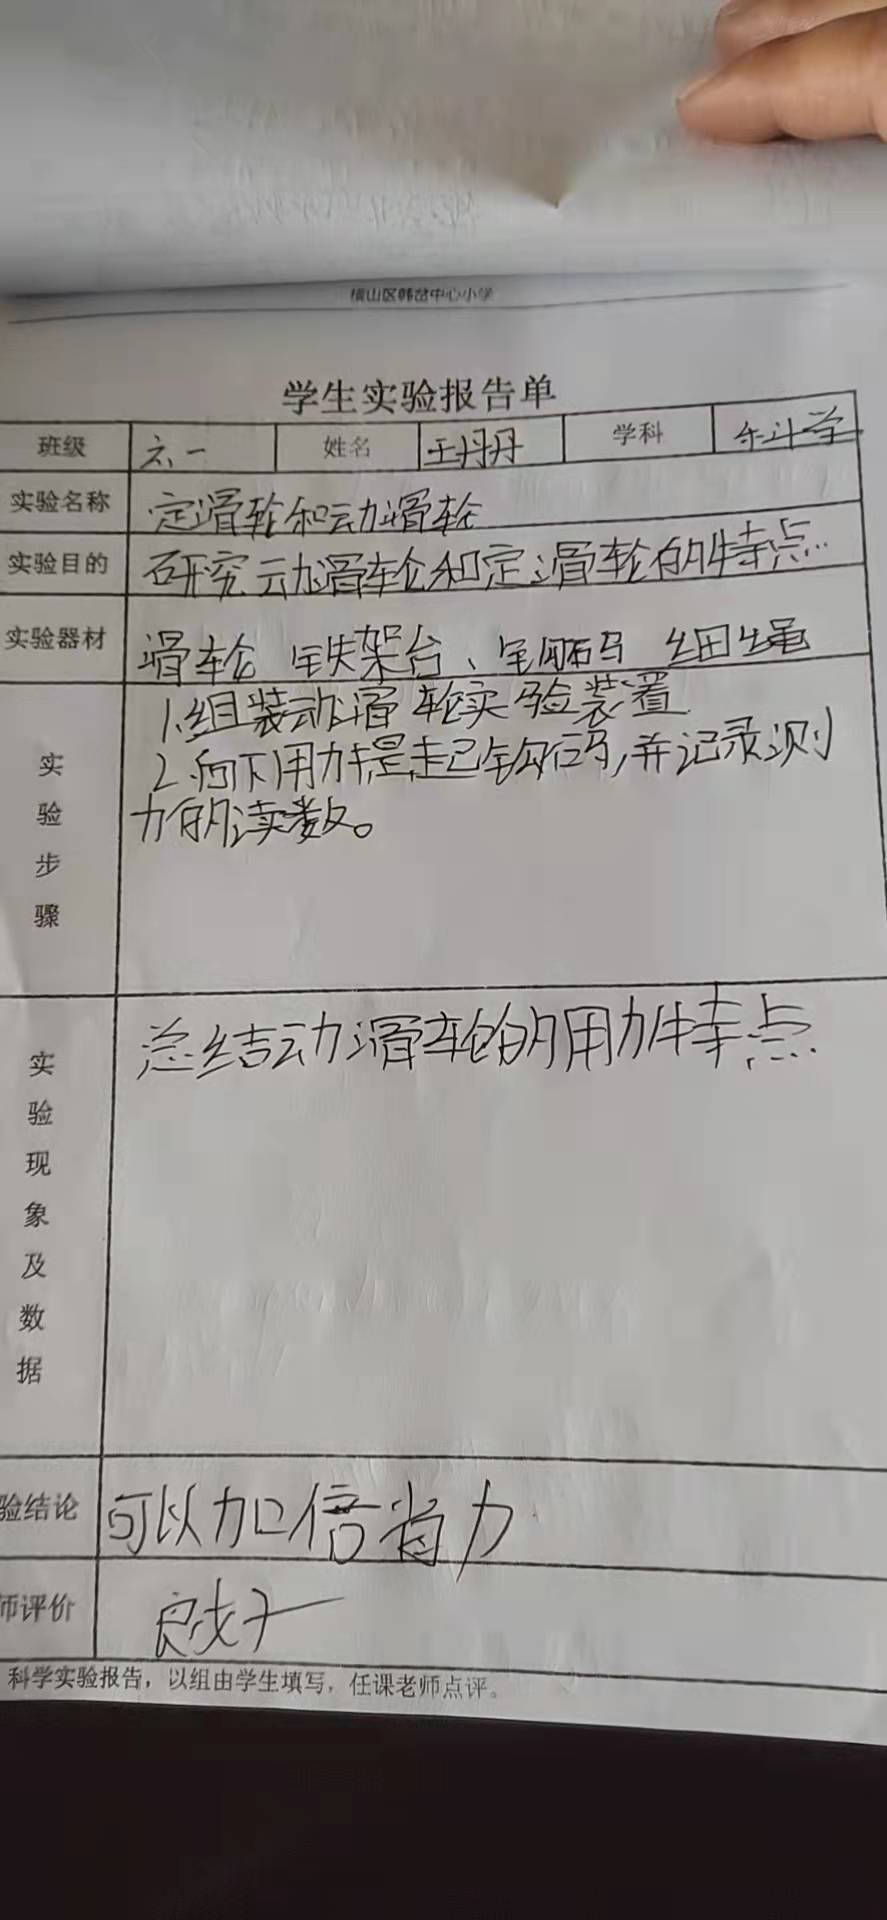 横山区韩岔中心小学
学生实验报告单
班级 六、一 姓名 王丹丹 学科 科学
实验名称 定滑轮和动滑轮
实验目的 研究动滑轮和定滑轮的特点
实验器材 滑轮 铁架台、钩码 细绳
实验步骤
1.组装动滑轮实验装置
2.向下用力提起钩码,并记录测
力的读数。
实验现象及数据
总结动滑轮的用力特点
验结论 可以加倍省力
师评价 良好
科学实验报告，以组由学生填写，任课老师点评。